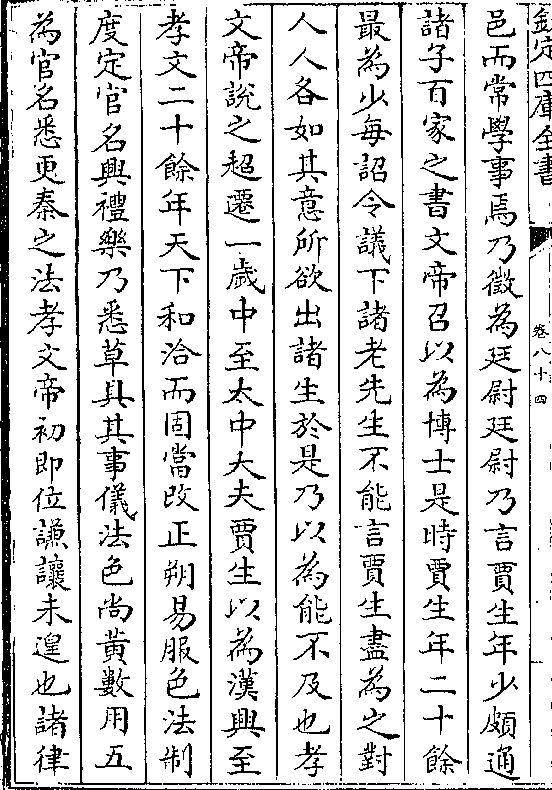 欽定四庫全書
卷八十四
邑而常學事焉乃徵為廷尉廷尉乃言賈生年少頗通
諸子百家之書文帝召以為博士是時賈生年二十餘
最為少每詔令議下諸老先生不能言賈生盡為之對
人人各如其意所欲出諸生於是乃以為能不及也孝
文帝說之超遷一歲中至太中大夫賈生以為漢興至
孝文二十餘年天下和洽而固當改正朔易服色法制
度定官名興禮樂乃悉草具其事儀法色尚黃數用五
為官名悉更秦之法孝文帝初即位謙讓未遑也諸律